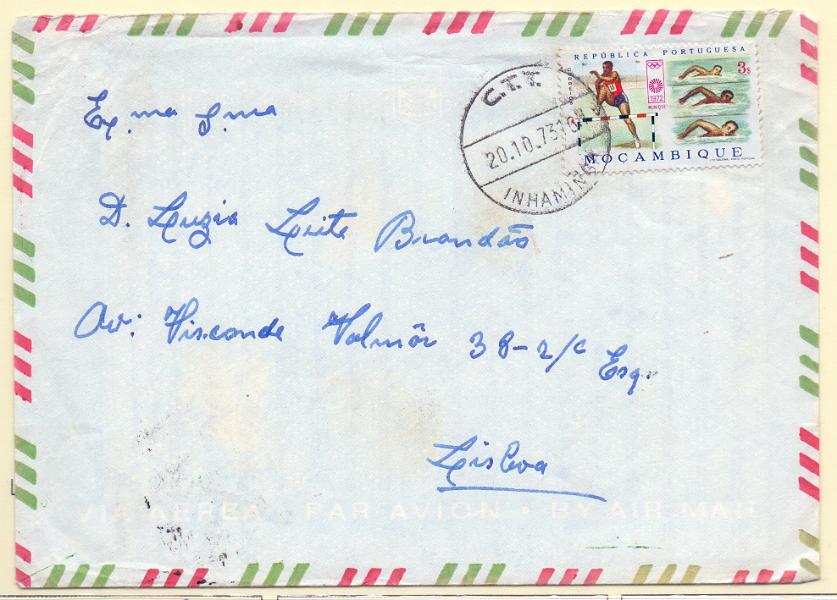 REPÚBLICA PORTUGUESA
3$
1972
MUNIQUE
MOÇAMBIQUE
C.T.T.
20.10.73
INHAMINGA
Ex.ma S.ma
D. Luzia Leite Brandão
Av: Visconde Valmôr 38-2/c Esq.
Lisboa
VIA AÉREA • PAR AVION • BY AIR MAIL